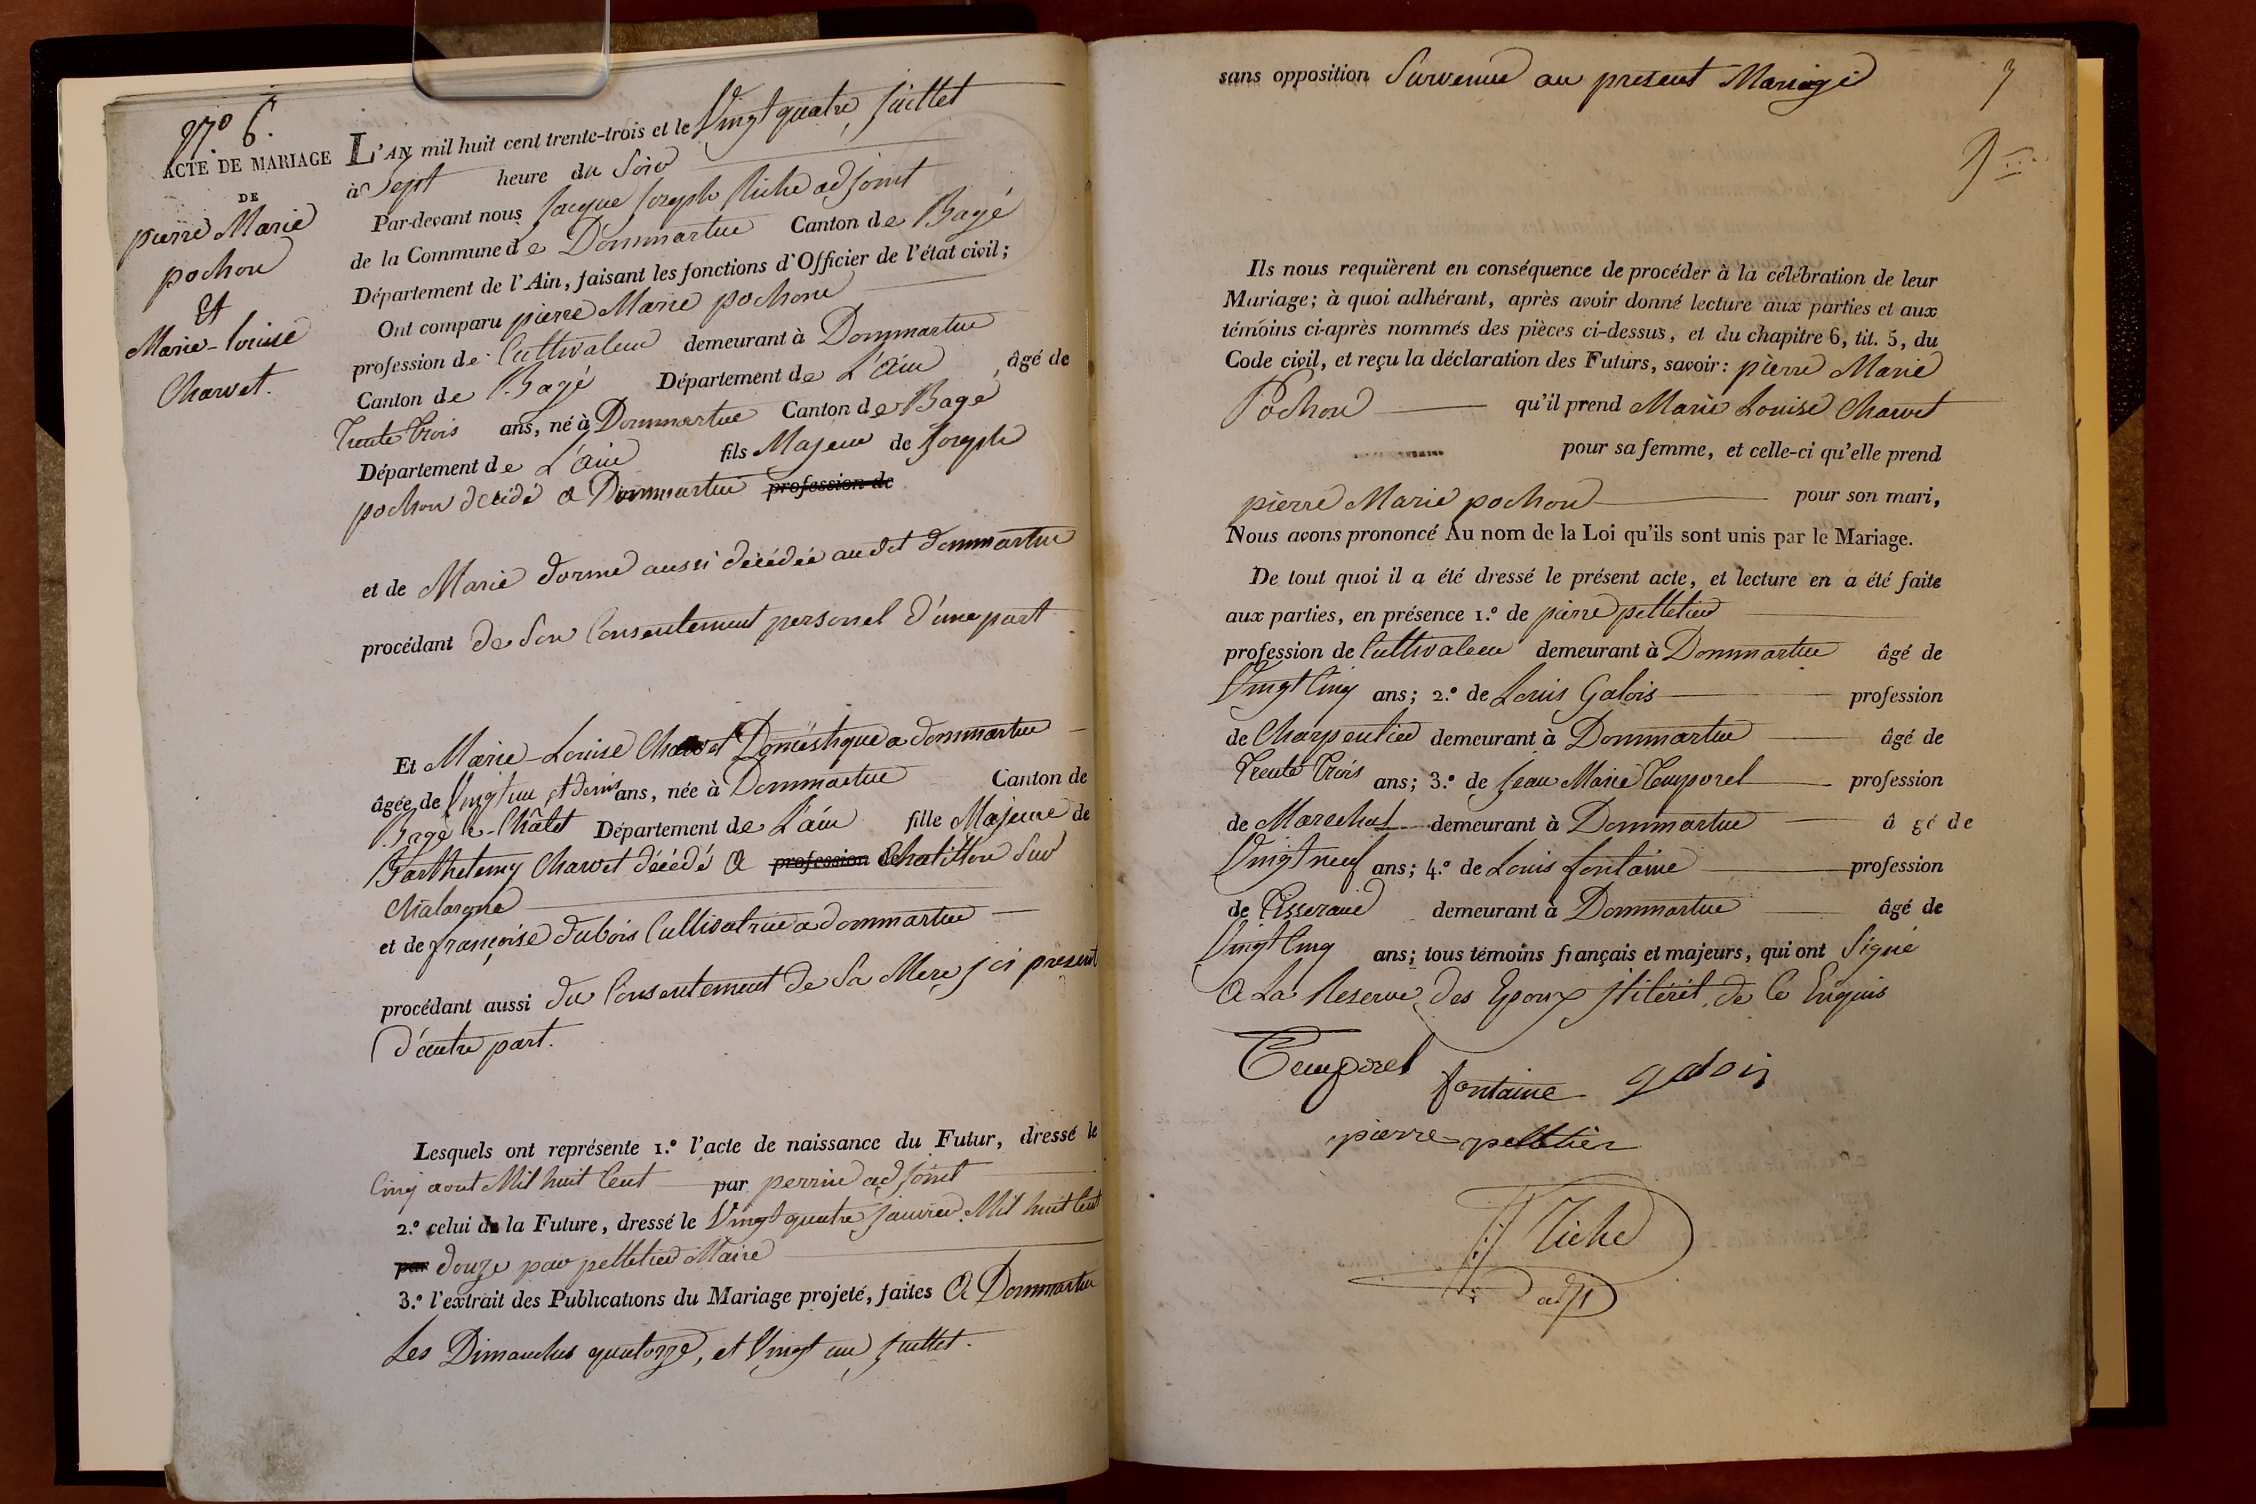 N.o 6.
ACTE DE MARIAGE
DE
pierre Marie
pochon
Et
Marie-louise
Charvet.
L'AN mil huit cent trente-trois et le Vingt quatre juillet
à Sept heure du Soir
Par-devant nous Jacque Joseph Riche adjoint
de la Commune de Dommartin Canton de Bagé
Département de l'Ain, faisant les fonctions d'Officier de l'état civil;
Ont comparu pierre Marie pochon
profession de Cultivateur demeurant à Dommartin
Canton de Bagé Département de L'ain, âgé de
Trente Trois ans, né à Dommartin Canton de Bagé
Département de L'ain fils Majeur de Joseph
pochon décédé a Dommartin profession de
et de Marie dorme aussi décédée audit dommartin
procédant de Son Consentement personel d'une part
Et Marie-Louise Charvet Domestique a dommartin
âgée de Vingt un et demis ans, née à Dommartin Canton de
Bagé-le-Châtel Département de L'ain fille Majeure de
Barthelemy Charvet décédé a profession de Chatillon Sur
Chalarone
et de françoise dubois Cultivatrice a dommartin
procédant aussi du Consentement de Sa Mere ici present
d'autre part.
Lesquels ont représente 1.o l'acte de naissance du Futur, dressé le
Cinq aout Mil huit Cent par perrin adjoint
2.o celui de la Future, dressé le Vingt quatre janvier Mil huit Cent
par douze par pelletier Maire
3.o l'extrait des Publications du Mariage projeté, faites a Dommartin
Les Dimanches quatorze, et Vingt un juillet.
sans opposition Survenue au present Mariage
3
Ils nous requièrent en conséquence de procéder à la célébration de leur
Mariage; à quoi adhérant, après avoir donné lecture aux parties et aux
témoins ci-après nommés des pièces ci-dessus, et du chapitre 6, tit. 5, du
Code civil, et reçu la déclaration des Futurs, savoir: pierre Marie
Pochon qu'il prend Marie Louise Charvet
pour sa femme, et celle-ci qu'elle prend
pierre Marie pochon pour son mari,
Nous avons prononcé Au nom de la Loi qu'ils sont unis par le Mariage.
De tout quoi il a été dressé le présent acte, et lecture en a été faite
aux parties, en présence 1.o de pierre pelletier
profession de Cultivateur demeurant à Dommartin âgé de
Vingt Cinq ans; 2.o de Louis Galois profession
de Charpentier demeurant à Dommartin âgé de
Trente Trois ans; 3.o de Jean Marie Temporel profession
de Marechal demeurant à Dommartin â gé de
Vingt neuf ans; 4.o de Louis fontaine profession
de Tisserand demeurant à Dommartin âgé de
Vingt Cinq ans; tous témoins français et majeurs, qui ont Signé
a La Reserve des Epoux jliterét. de Ce Enquis
Temporel
fontaine galois
pierre pelletier
JJ Riche
adjt